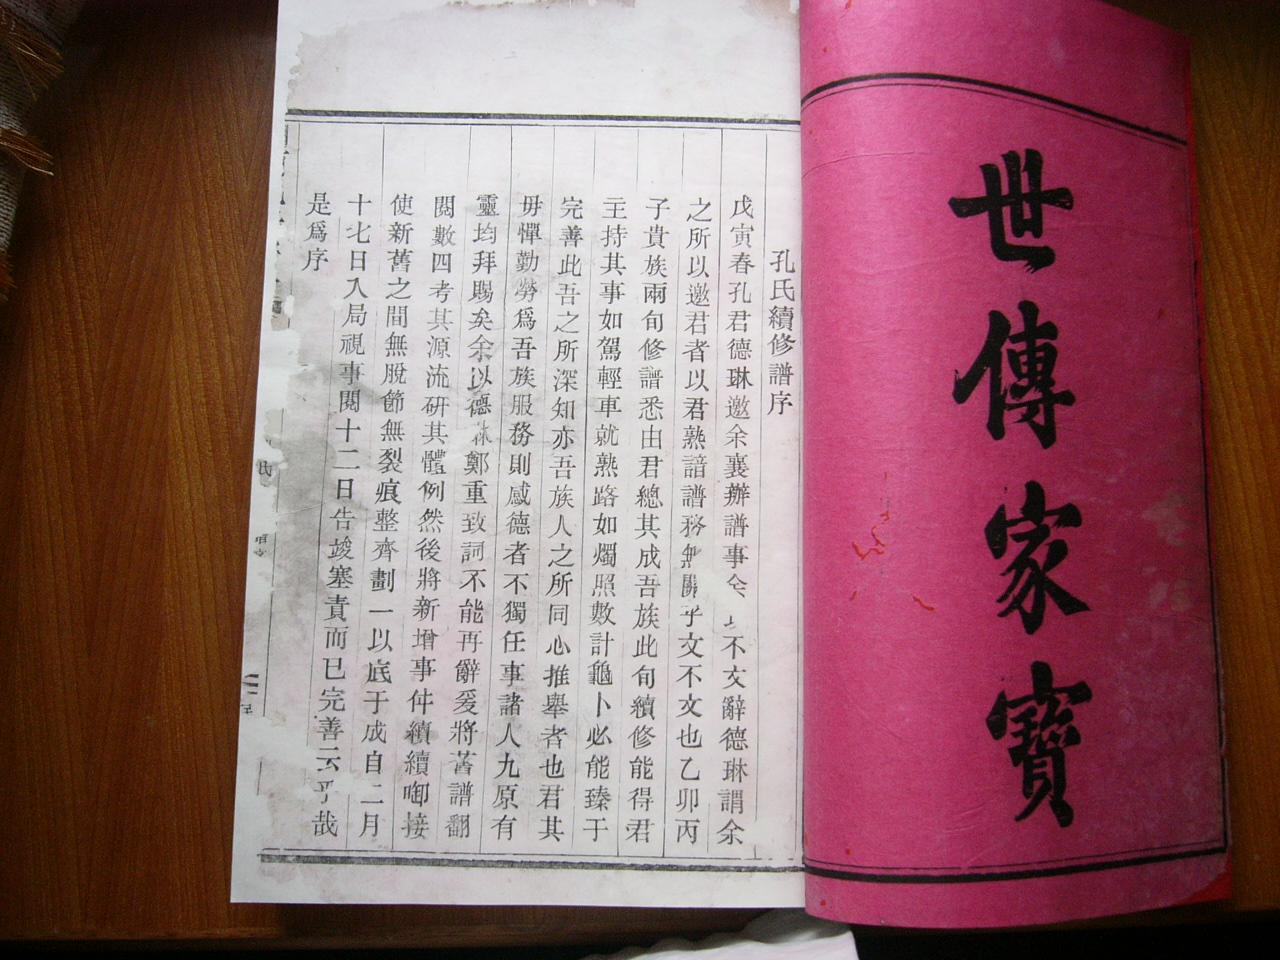 世傳家寶
孔氏續修譜序
戊寅春孔君德琳邀余襄辦譜事余以不文辭德琳謂余
之所以邀君者以君熟諳譜務無關乎文不文也乙卯丙
子貴族兩旬修譜悉由君總其成吾族此旬續修能得君
主持其事如駕輕車就熟路如燭照數計龜卜必能臻于
完善此吾之所深知亦吾族人之所同心推舉者也君其
毋憚勤勞爲吾族服務則感德者不獨任事諸人九原有
靈均拜賜矣余以德琳鄭重致詞不能再辭爰將舊譜翻
閱數四考其源流研其體例然後將新增事件續續啣接
使新舊之間無脫節無裂痕整齊劃一以底于成自二月
十七日入局視事閱十二日告竣塞責而已完善云乎哉
是爲序
氏